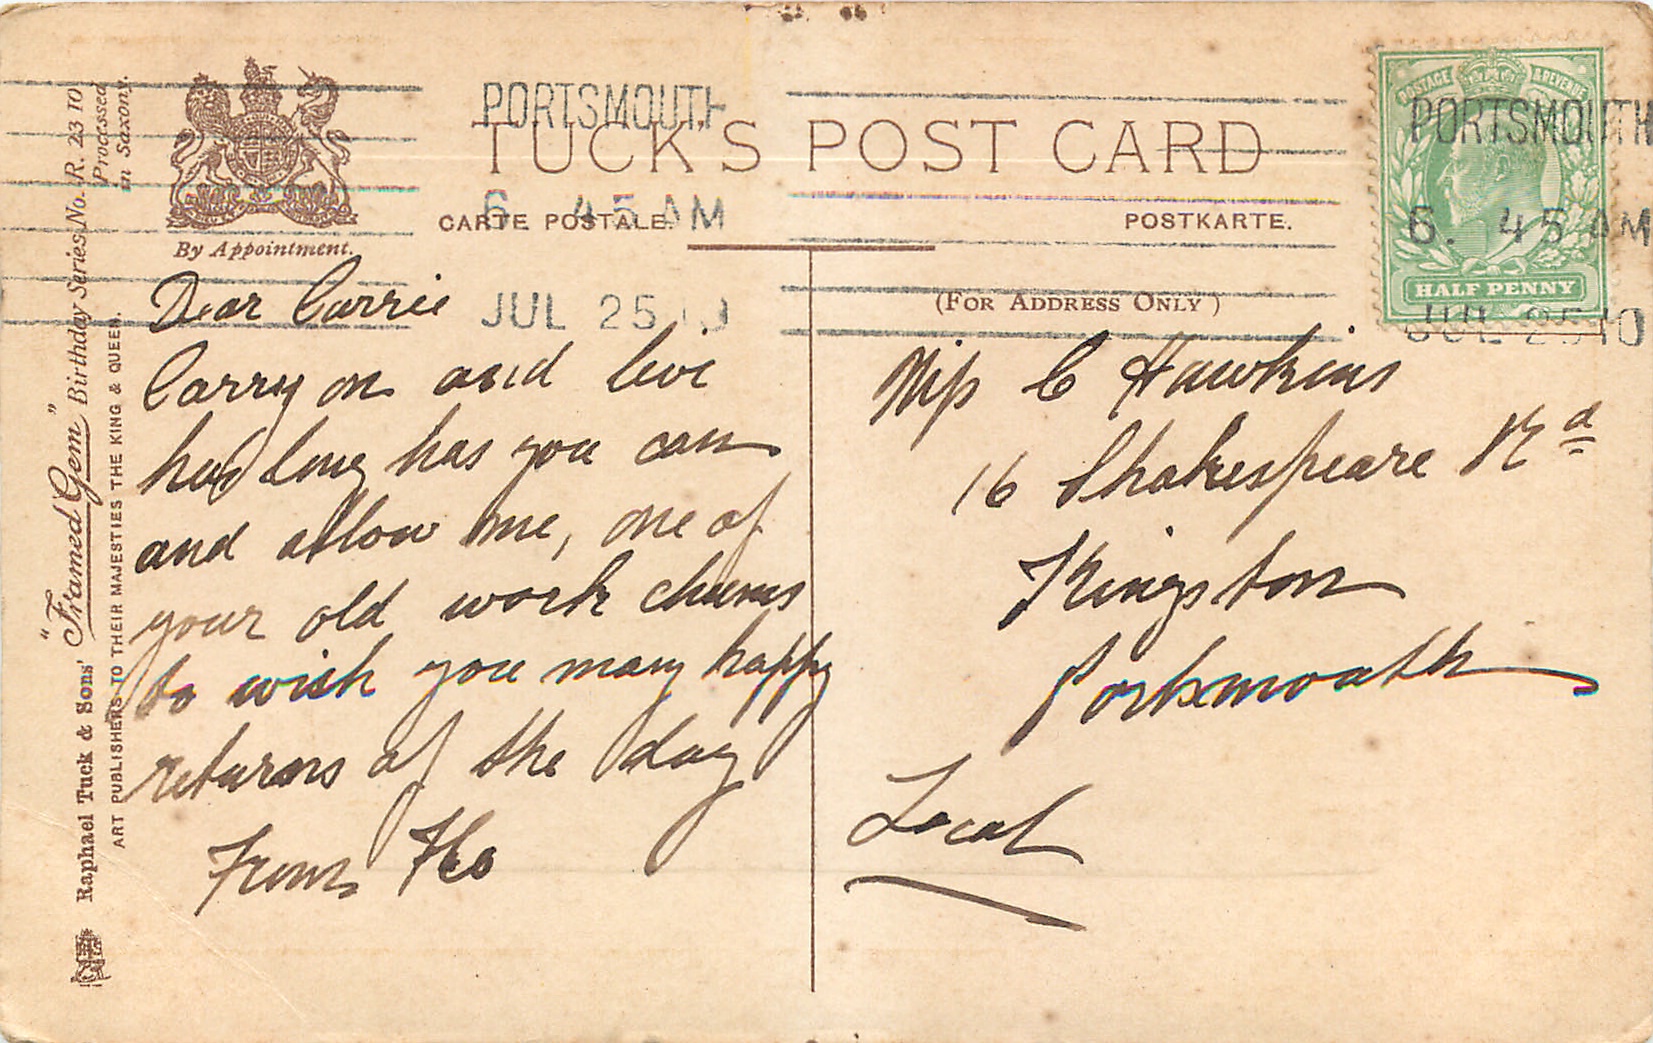 PORTSMOUTH
6. 45 AM
JUL 25 10
PORTSMOUTH
6. 45 AM
JUL 25 10
POSTAGE & REVENUE
HALF PENNY
TUCK'S POST CARD
CARTE POSTALE.
POSTKARTE.
By Appointment.
(FOR ADDRESS ONLY)
Raphael Tuck & Sons' "Framed Gem" Birthday Series No. R. 2310
Processed
in Saxony.
ART PUBLISHERS TO THEIR MAJESTIES THE KING & QUEEN.
Dear Carrie
Carry on and live
long has you can
and allow me, one of
your old work chums
to wish you many happy
returns of the day
From Flo
Miss C Hawkins
16 Shakespeare Rd
Kingston
Portsmouth
Local